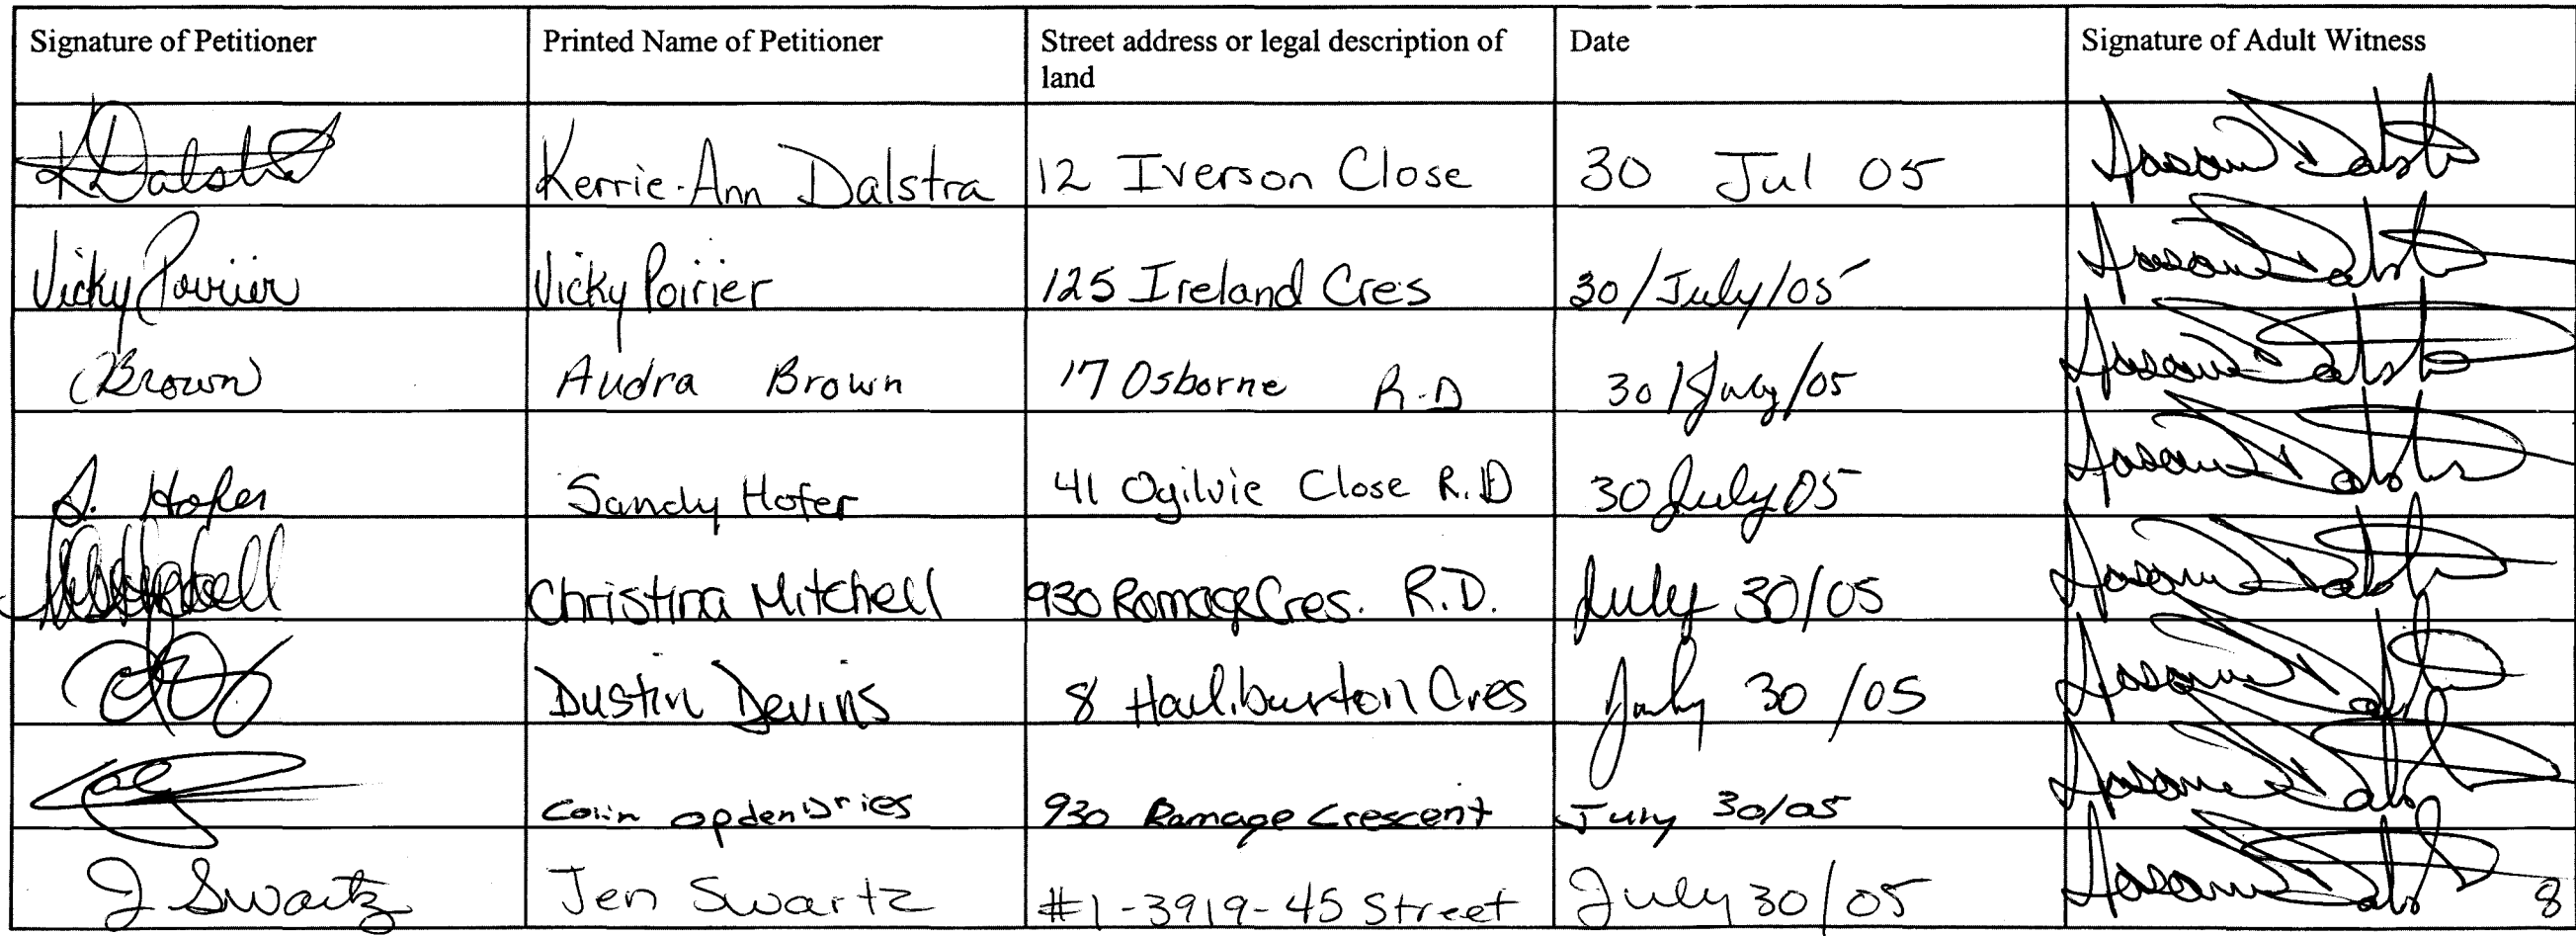 Signature of Petitioner Printed Name of Petitioner Street address or legal description of land Date Signature of Adult Witness
KDalstra Kerrie-Ann Dalstra 12 Iverson Close 30 Jul 05 Jason Dalstra
Vicky Poirier Vicky Poirier 125 Ireland Cres 30/July/05 Jason Dalstra
Brown Audra Brown 17 Osborne R.D 30/July/05 Jason Dalstra
S. Hofer Sandy Hofer 41 Ogilvie Close R.D 30 July 05 Jason Dalstra
Christina Mitchell 930 Ramage Cres. R.D. July 30/05 Jason Dalstra
Dustin Devins 8 Hailiburton Cres July 30/05 Jason Dalstra
Colin opdenDries 930 Ramage Crescent July 30/05 Jason Dalstra
J Swartz Jen Swartz #1-3919-45 Street July 30/05 Jason Dalstra
8